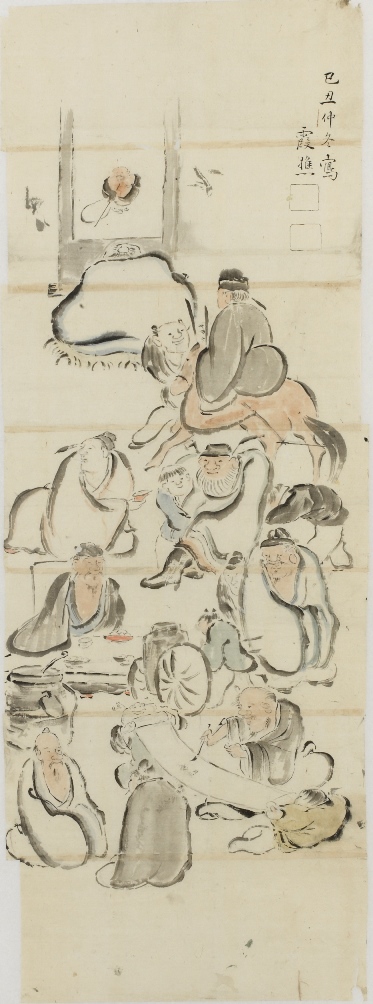 己丑仲冬寫
霞樵